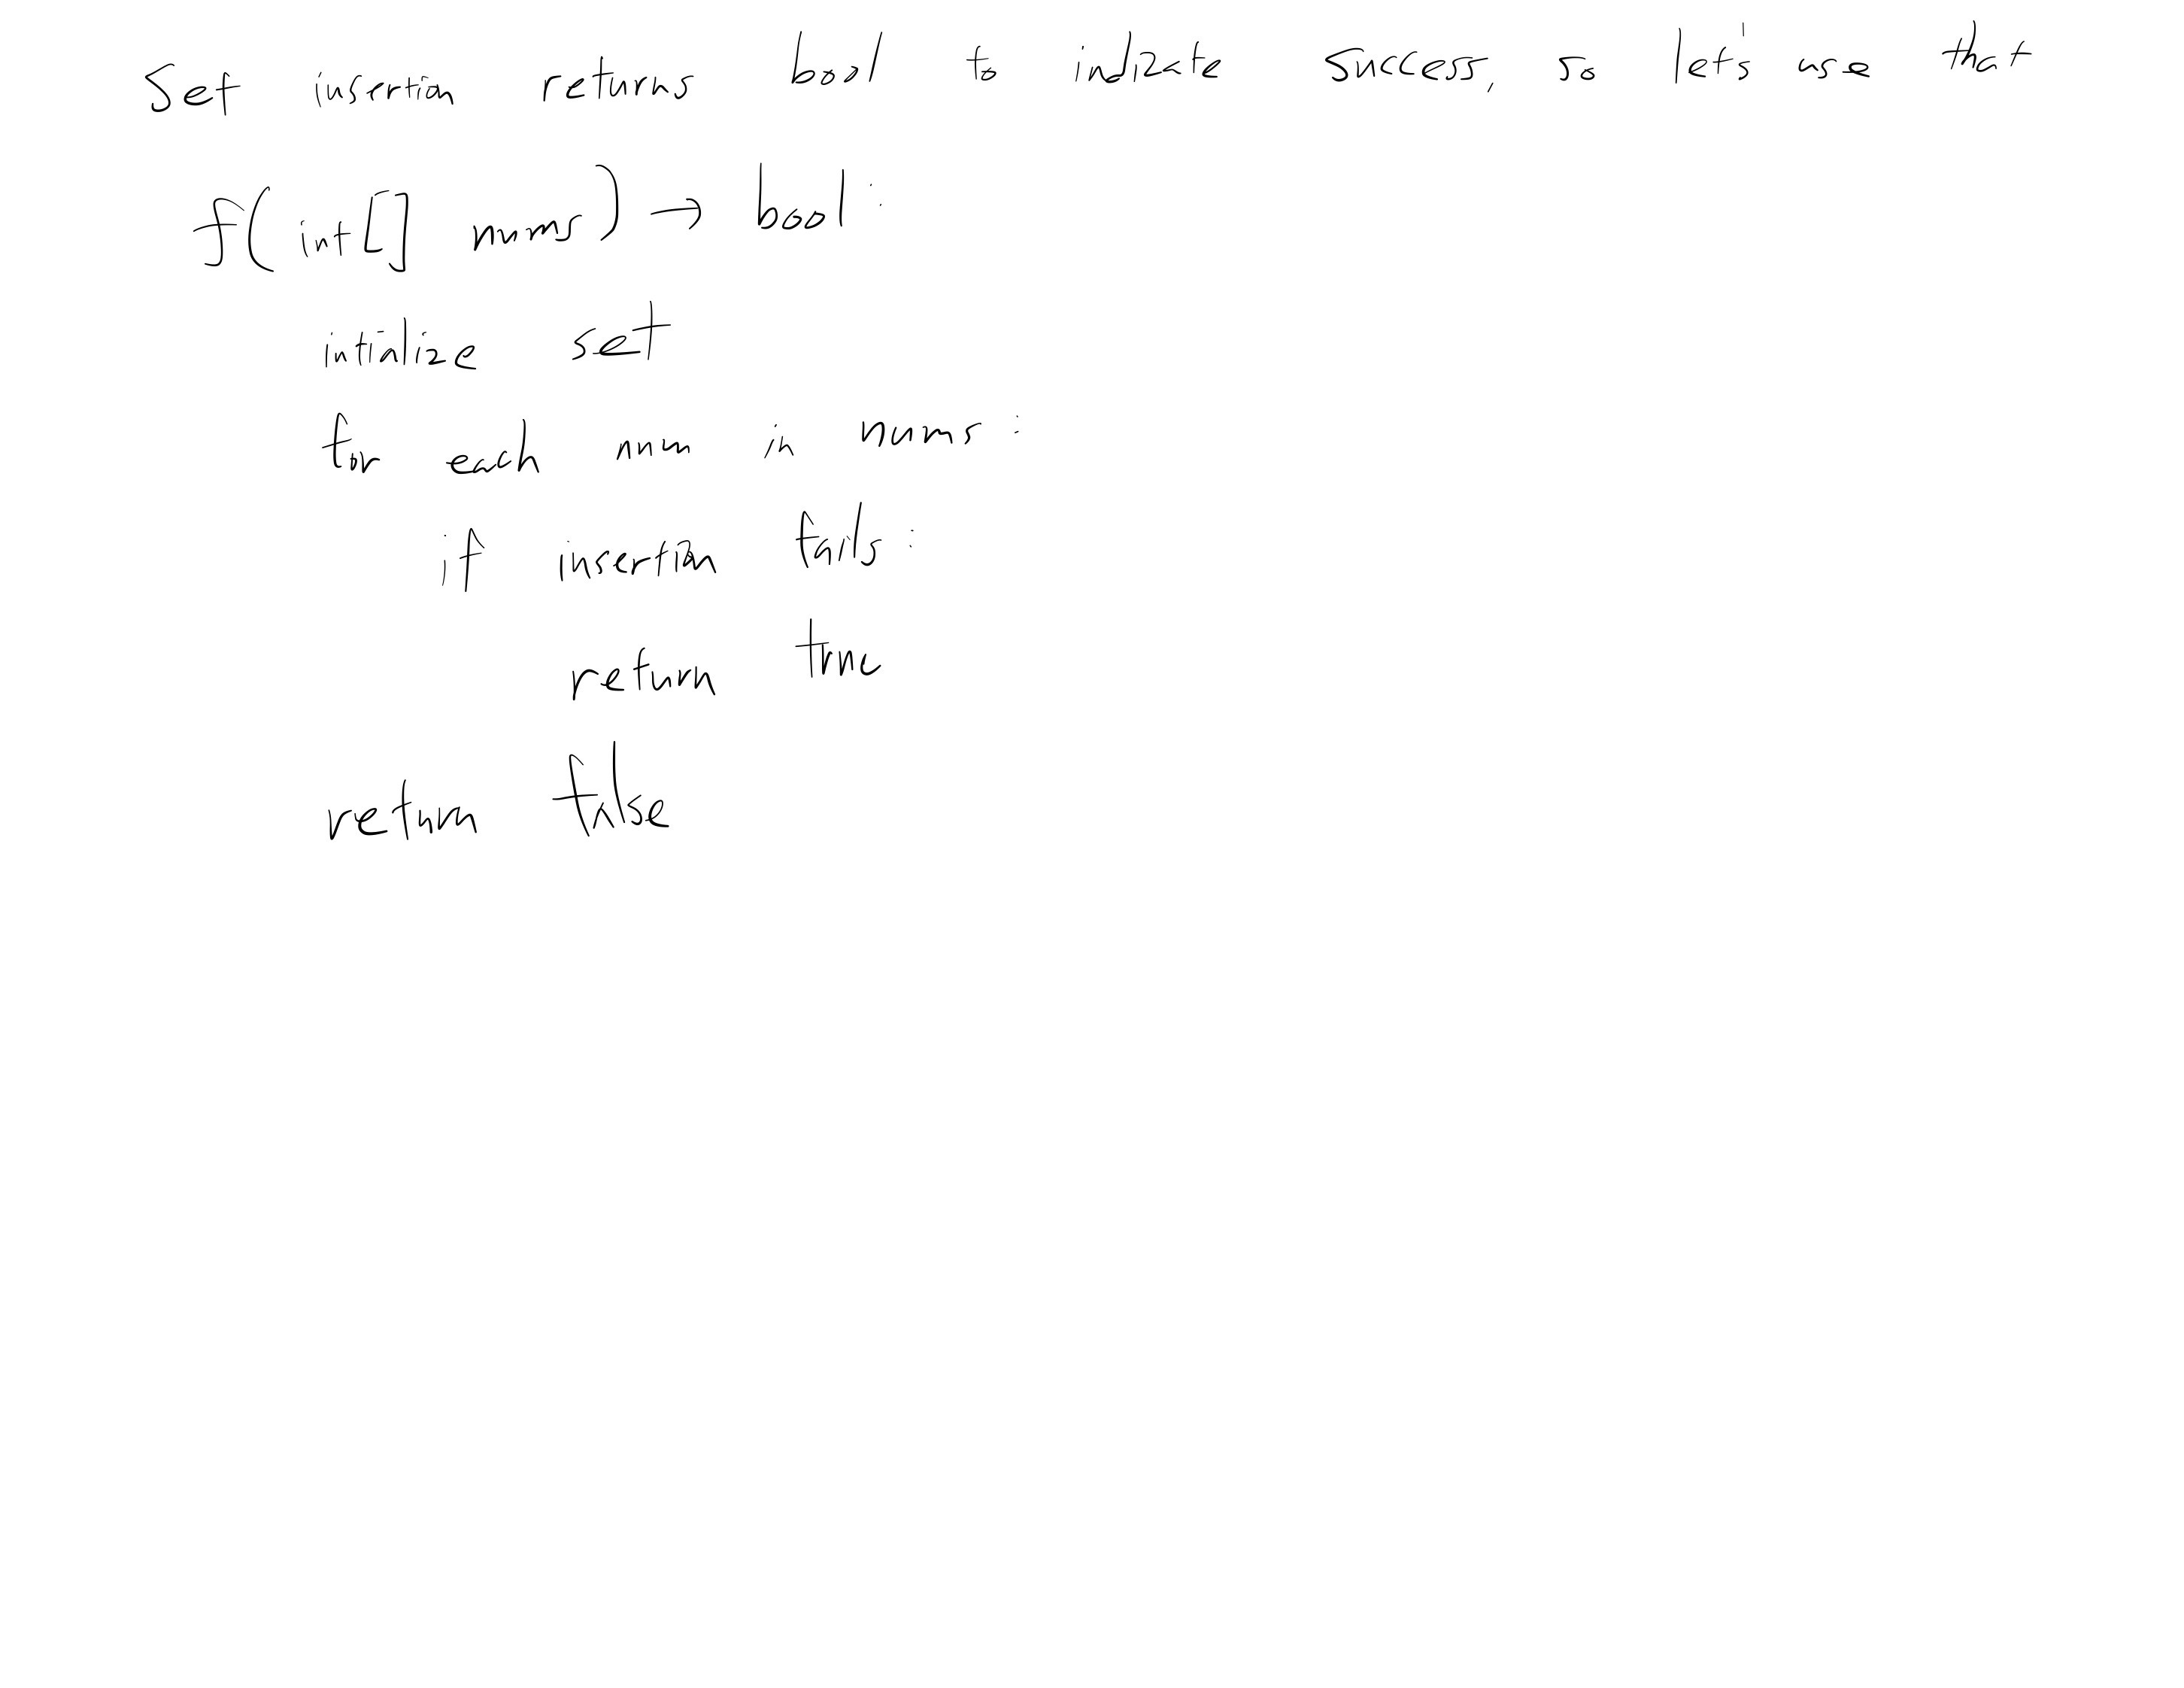 Set insertion returns bool to indicate success, so let's use that
f(int[] nums) → bool:
intialize set
for each num in nums:
if insertion fails:
return true
return false